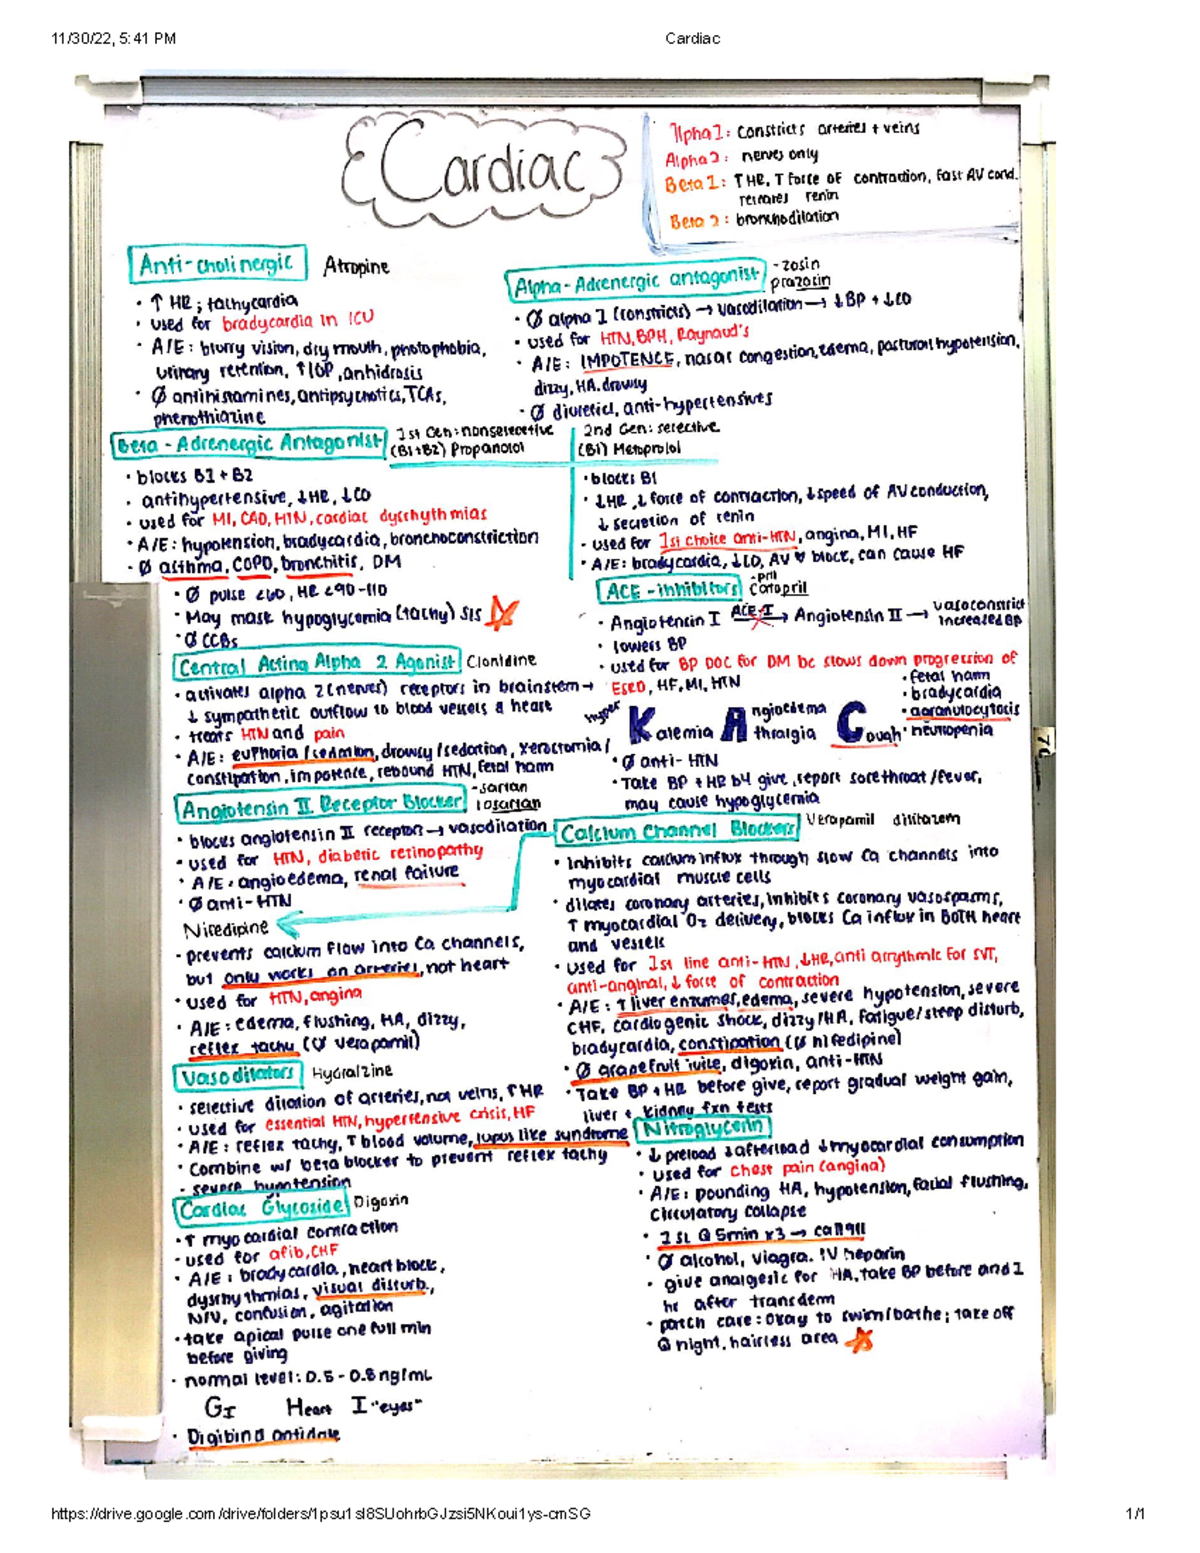 11/30/22, 5:41 PM
Cardiac
Cardiac
Alpha 1: constricts arteries + veins
Alpha 2: nerves only
Beta 1: ↑HR, ↑ force of contraction, fast AV cond.
releases renin
Beta 2: bronchodilation
Anti-cholinergic Atropine
• ↑ HR; tachycardia
• used for bradycardia in ICU
• A/E: blurry vision, dry mouth, photophobia,
urinary retention, ↑IOP, anhidrosis
• Ø antihistamines, antipsychotics, TCAs,
phenothiazine
Alpha-Adrenergic antagonist -zosin
prazosin
• Ø alpha 1 (constricts) → vasodilation → ↓BP + ↓CO
• used for HTN, BPH, Raynaud's
• A/E: IMPOTENCE, nasal congestion, edema, postural hypotension,
dizzy, HA, drowsy
• Ø diuretics, anti-hypertensives
Beta-Adrenergic Antagonist
1st Gen: nonselective
(B1+B2) Propanolol
• blocks B1 + B2
• antihypertensive, ↓HR, ↓CO
• used for MI, CAD, HTN, cardiac dysrhythmias
• A/E: hypotension, bradycardia, bronchoconstriction
• Ø asthma, COPD, bronchitis, DM
• Ø pulse <60, HR <90-110
• May mask hypoglycemia (tachy) S/S
• Ø CCBs
2nd Gen: selective
(B1) Metoprolol
• blocks B1
• ↓HR, ↓ force of contraction, ↓speed of AV conduction,
↓ secretion of renin
• used for 1st choice anti-HTN, angina, MI, HF
• A/E: bradycardia, ↓CO, AV ♥ block, can cause HF
ACE-inhibitors -pril
Captopril
• Angiotensin I ACE-I → Angiotensin II → vasoconstrict
increased BP
• lowers BP
• used for BP DOC for DM bc slows down progression of
ESRD, HF, MI, HTN
• fetal harm
• bradycardia
• agranulocytosis
• neutropenia
hyper Kalemia Angioedema
Athralgia Cough
• Ø anti-HTN
• Take BP + HR b4 give, report sorethroat/fever,
may cause hypoglycemia
Central Acting Alpha 2 Agonist Clonidine
• activates alpha 2 (nerves) receptors in brainstem →
↓ sympathetic outflow to blood vessels & heart
• treats HTN and pain
• A/E: euphoria/sedation, drowsy/sedation, xerostomia/
constipation, impotence, rebound HTN, fetal harm
Angiotensin II Receptor Blocker -sartan
losartan
• blocks angiotensin II receptor → vasodilation
• used for HTN, diabetic retinopathy
• A/E: angioedema, renal failure
• Ø anti-HTN
Calcium Channel Blockers Verapamil diltiazem
• inhibits calcium influx through slow Ca channels into
myocardial muscle cells
• dilates coronary arteries, inhibits coronary vasospasms,
↑ myocardial O2 delivery, blocks Ca influx in BOTH heart
and vessels
• used for 1st line anti-HTN, ↓HR, anti arrythmic for SVT,
anti-anginal, ↓ force of contraction
• A/E: ↑liver enzymes, edema, severe hypotension, severe
CHF, cardiogenic shock, dizzy/HA, fatigue/sleep disturb,
bradycardia, constipation (Ø nifedipine)
• Ø grapefruit juice, digoxin, anti-HTN
• Take BP + HR before give, report gradual weight gain,
liver + kidney fxn tests
Nifedipine
- prevents calcium flow into Ca channels,
but only works on arteries, not heart
• used for HTN, angina
• A/E: edema, flushing, HA, dizzy,
reflex tachy (Ø verapamil)
Vasodilators Hydralzine
• selective dilation of arteries, not veins, ↑HR
• used for essential HTN, hypertensive crisis, HF
• A/E: reflex tachy, ↑ blood volume, lupus like syndrome
• Combine w/ beta blocker to prevent reflex tachy
- severe hypotension
Cardiac Glycoside Digoxin
• ↑ myocardial contraction
• used for afib, CHF
• A/E: bradycardia, heart block,
dysrhythmias, visual disturb.,
N/V, confusion, agitation
• take apical pulse one full min
before giving
• normal level: 0.5 - 0.8 ng/mL
GI Heart I "eyes"
• Digibind antidote
Nitroglycerin
• ↓ preload ↓afterload ↓myocardial consumption
• used for chest pain (angina)
• A/E: pounding HA, hypotension, facial flushing,
circulatory collapse
• 1 SL Q 5min x3 → call 911
• Ø alcohol, viagra, IV heparin
• give analgesic for HA, take BP before and 1
hr after transderm
• patch care: okay to swim/bathe; take off
@ night, hairless area
https://drive.google.com/drive/folders/1psu1sl8SUohrbGJzsi5NKoui1ys-cmSG
1/1